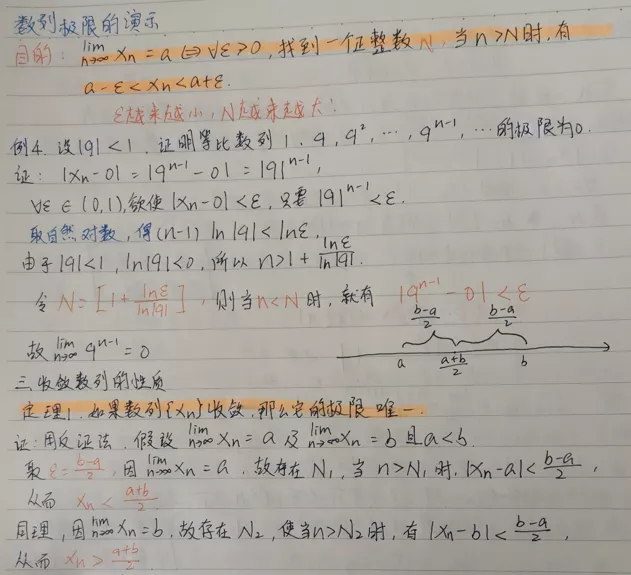 数列极限的演示
目的: lim n→∞ xn = a ⇔ ∀ε>0, 找到一个正整数 N, 当 n>N 时, 有
a-ε<xn<a+ε.
ε越来越小, N越来越大!
例4. 设|q|<1. 证明等比数列 1, q, q², ⋯, q^(n-1), ⋯的极限为0.
证: |xn-0| = |q^(n-1)-0| = |q|^(n-1),
∀ε∈(0,1), 欲使|xn-0|<ε, 只要|q|^(n-1)<ε.
取自然对数, 得(n-1) ln|q|<lnε.
由于|q|<1, ln|q|<0, 所以 n>1+lnε/ln|q|.
令 N=[1+lnε/ln|q|], 则当n<N时, 就有 |q^(n-1)-0|<ε
(b-a)/2 (b-a)/2
故 lim n→∞ q^(n-1)=0
a (a+b)/2 b
三.收敛数列的性质
定理1. 如果数列{xn}收敛, 那么它的极限唯一.
证: 用反证法. 假设 lim n→∞ xn = a 及 lim n→∞ xn = b 且a<b.
取ε=(b-a)/2, 因 lim n→∞ xn = a, 故存在 N₁, 当 n>N₁ 时, |xn-a|<(b-a)/2,
从而 xn<(a+b)/2.
同理, 因 lim n→∞ xn=b, 故存在 N₂, 使当n>N₂时, 有 |xn-b|<(b-a)/2,
从而 xn>(a+b)/2